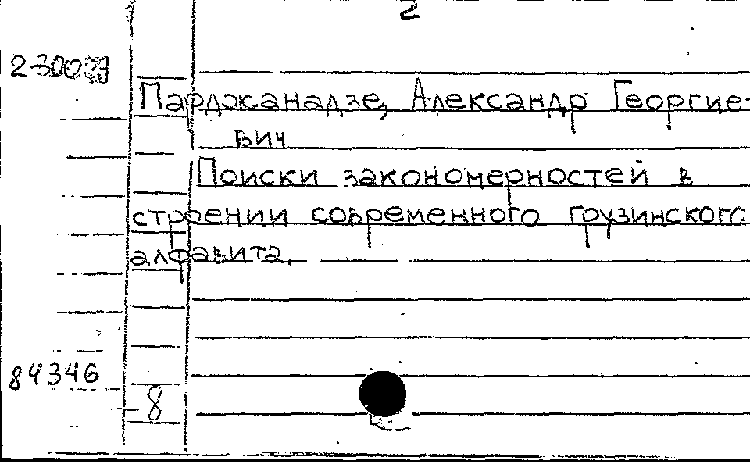 2
Парджанадзе, Александр Георгие-
вич
Поиски закономерностей в
строении современного грузинского
алфавита.
84346
8